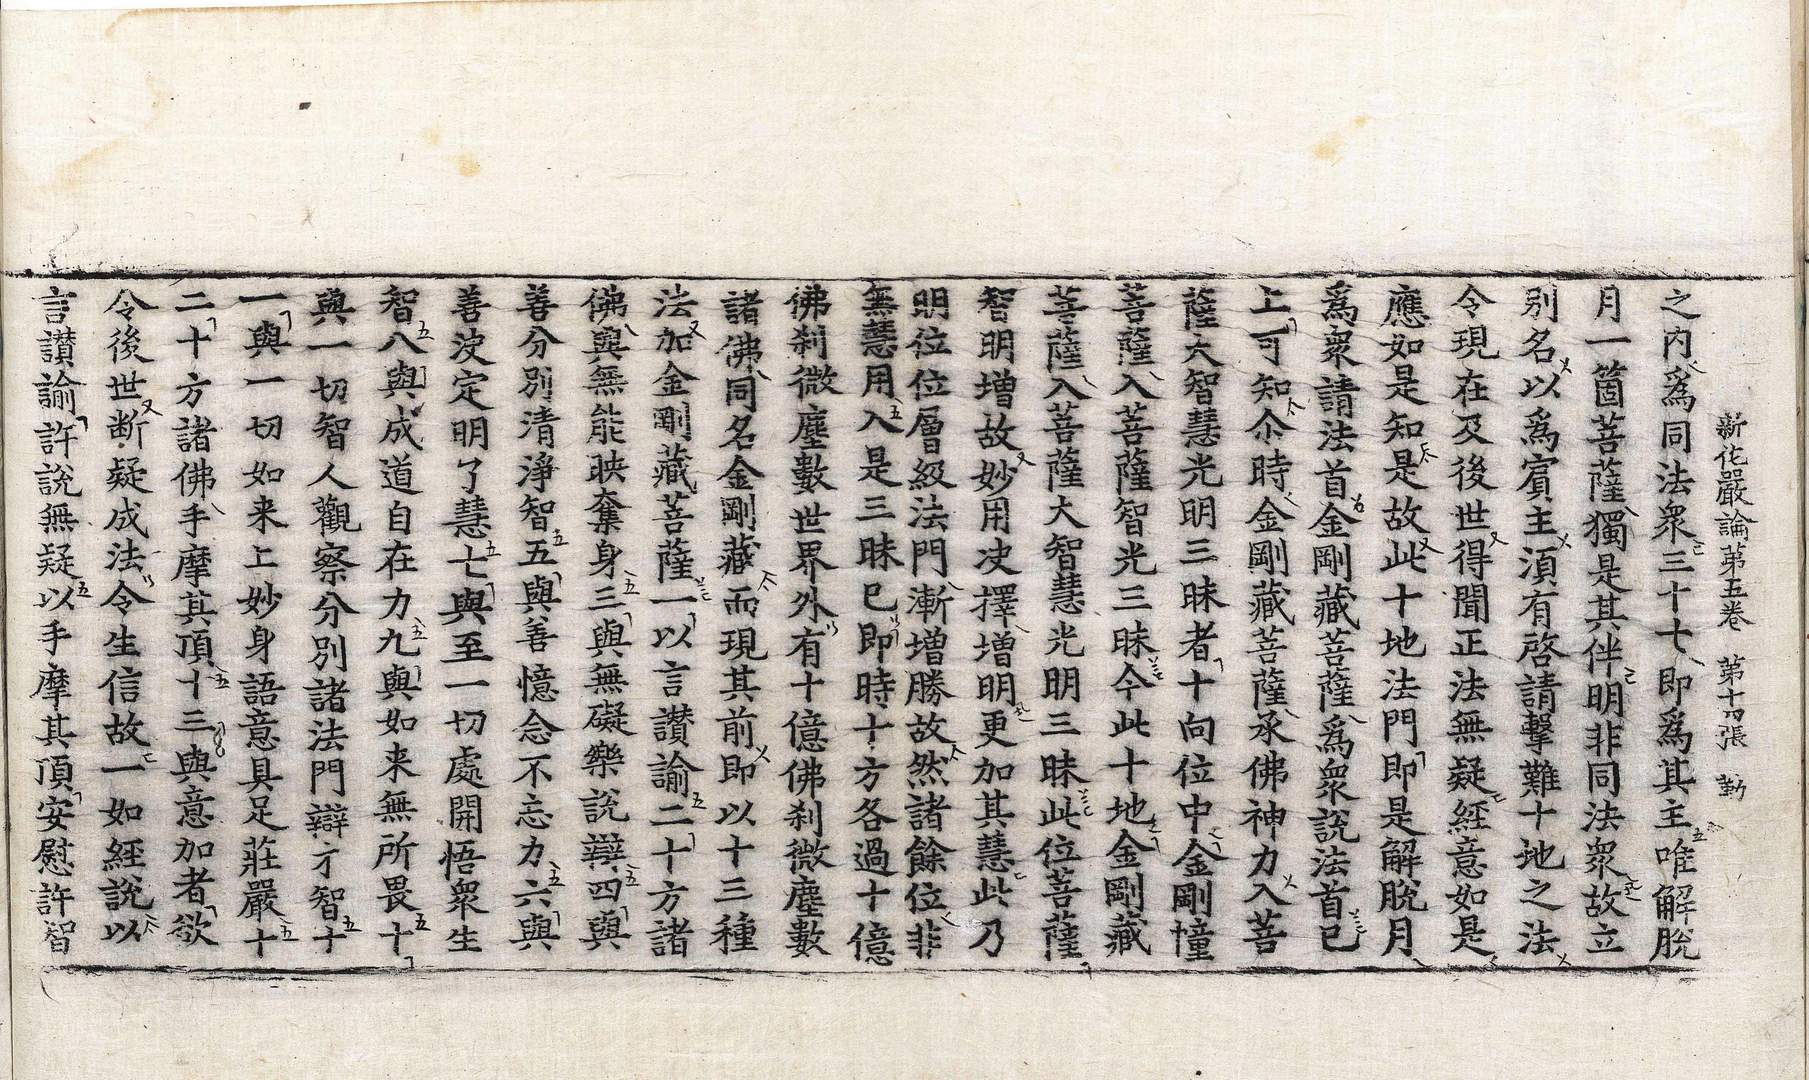 新花嚴論第五卷 第十四張 勤
之内爲同法衆三十七即爲其主唯解脫
月一箇菩薩獨是其伴明非同法衆故立
別名以爲賓主湏有啓請擊難十地之法
令現在及後世得聞正法無疑経意如是
應如是知是故此十地法門即是解脫月
爲衆請法首金剛藏菩薩爲衆說法首已
上可知尒時金剛藏菩薩承佛神力入菩
薩大智慧光明三昧者十向位中金剛幢
菩薩入菩薩智光三昧今此十地金剛藏
菩薩入菩薩大智慧光明三昧此位菩薩
智明增故妙用决擇增明更加其慧此乃
明位位層級法門漸增勝故然諸餘位非
無慧用入是三昧已即時十方各過十億
佛刹微塵數世界外有十億佛刹微塵數
諸佛同名金剛藏而現其前即以十三種
法加金剛藏菩薩一以言讃諭二十方諸
佛與無能映奪身三與無礙樂說辯四與
善分別清淨智五與善憶念不忘力六與
善决定明了慧七與至一切處開悟衆生
智八與成道自在力九與如来無所畏十
與一切智人觀察分別諸法門辯才智十
一與一切如来上妙身語意具足莊嚴十
二十方諸佛手摩其頂十三與意加者欲
令後世断疑成法令生信故一如経說以
言讃諭許說無疑以手摩其頂安慰許智